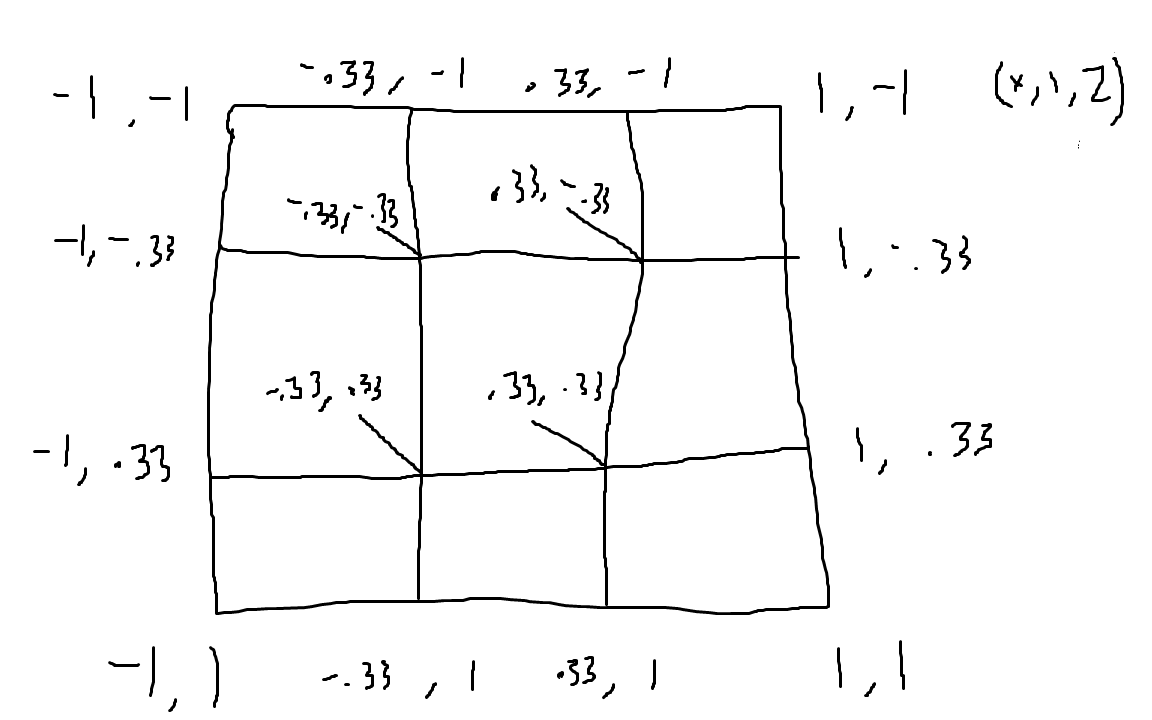 -.33, -1 .33, -1
-1, -1 1, -1 (x,1,z)
-.33, -.33 .33, -.33
-1, -.33 1, -.33
-.33, .33 .33, .33
-1, .33 1, .33
-1, 1 -.33, 1 .33, 1 1, 1